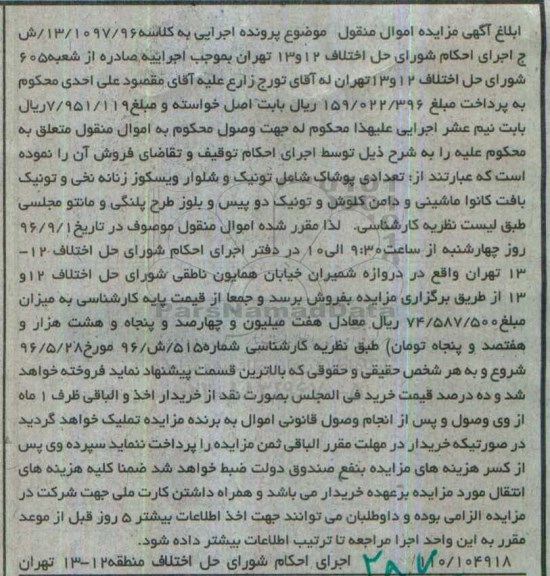 ابلاغ آگهی مزایده اموال منقول موضوع پرونده اجرایی به کلاسه۱۳/۱۰۹۷/۹۶/ش
ج اجرای احکام شورای حل اختلاف ۱۲و۱۳ تهران بموجب اجراییه صادره از شعبه۶۰۵
شورای حل اختلاف ۱۲و۱۳تهران له آقای تورج زارع علیه آقای مقصود علی احدی محکوم
به پرداخت مبلغ ۱۵۹/۰۲۲/۳۹۶ ریال بابت اصل خواسته و مبلغ۷/۹۵۱/۱۱۹ریال
بابت نیم عشر اجرایی علیهذا محکوم له جهت وصول محکوم به اموال منقول متعلق به
محکوم علیه را به شرح ذیل توسط اجرای احکام توقیف و تقاضای فروش آن را نموده
است که عبارتند از: تعدادی پوشاک شامل تونیک و شلوار ویسکوز زنانه نخی و تونیک
بافت کانوا ماشینی و دامن کلوش و تونیک دو پیس و بلوز طرح پلنگی و مانتو مجلسی
طبق لیست نظریه کارشناسی. لذا مقرر شده اموال منقول موصوف در تاریخ۹۶/۹/۱
روز چهارشنبه از ساعت۹:۳۰ الی۱۰ در دفتر اجرای احکام شورای حل اختلاف ۱۲-
۱۳ تهران واقع در دروازه شمیران خیابان همایون ناطقی شورای حل اختلاف ۱۲و
۱۳ از طریق برگزاری مزایده بفروش برسد و جمعا از قیمت پایه کارشناسی به میزان
مبلغ۷۴/۵۸۷/۵۰۰ ریال معادل هفت میلیون و چهارصد و پنجاه و هشت هزار و
هفتصد و پنجاه تومان) طبق نظریه کارشناسی شماره۵۱۵/ش/۹۶ مورخ۹۶/۵/۲۸
شروع و به هر شخص حقیقی و حقوقی که بالاترین قسمت پیشنهاد نماید فروخته خواهد
شد و ده درصد قیمت خرید فی المجلس بصورت نقد از خریدار اخذ و الباقی ظرف ۱ ماه
از وی وصول و پس از انجام وصول قانونی اموال به برنده مزایده تملیک خواهد گردید
در صورتیکه خریدار در مهلت مقرر الباقی ثمن مزایده را پرداخت ننماید سپرده وی پس
از کسر هزینه های مزایده بنفع صندوق دولت ضبط خواهد شد ضمنا کلیه هزینه های
انتقال مورد مزایده برعهده خریدار می باشد و همراه داشتن کارت ملی جهت شرکت در
مزایده الزامی بوده و داوطلبان می توانند جهت اخذ اطلاعات بیشتر ۵ روز قبل از موعد
مقرر به این واحد اجرا مراجعه تا ترتیب اطلاعات بیشتر داده شود.
۰/۱۰۴۹۱۸ اجرای احکام شورای حل اختلاف منطقه۱۲-۱۳ تهران
ParsNamadData